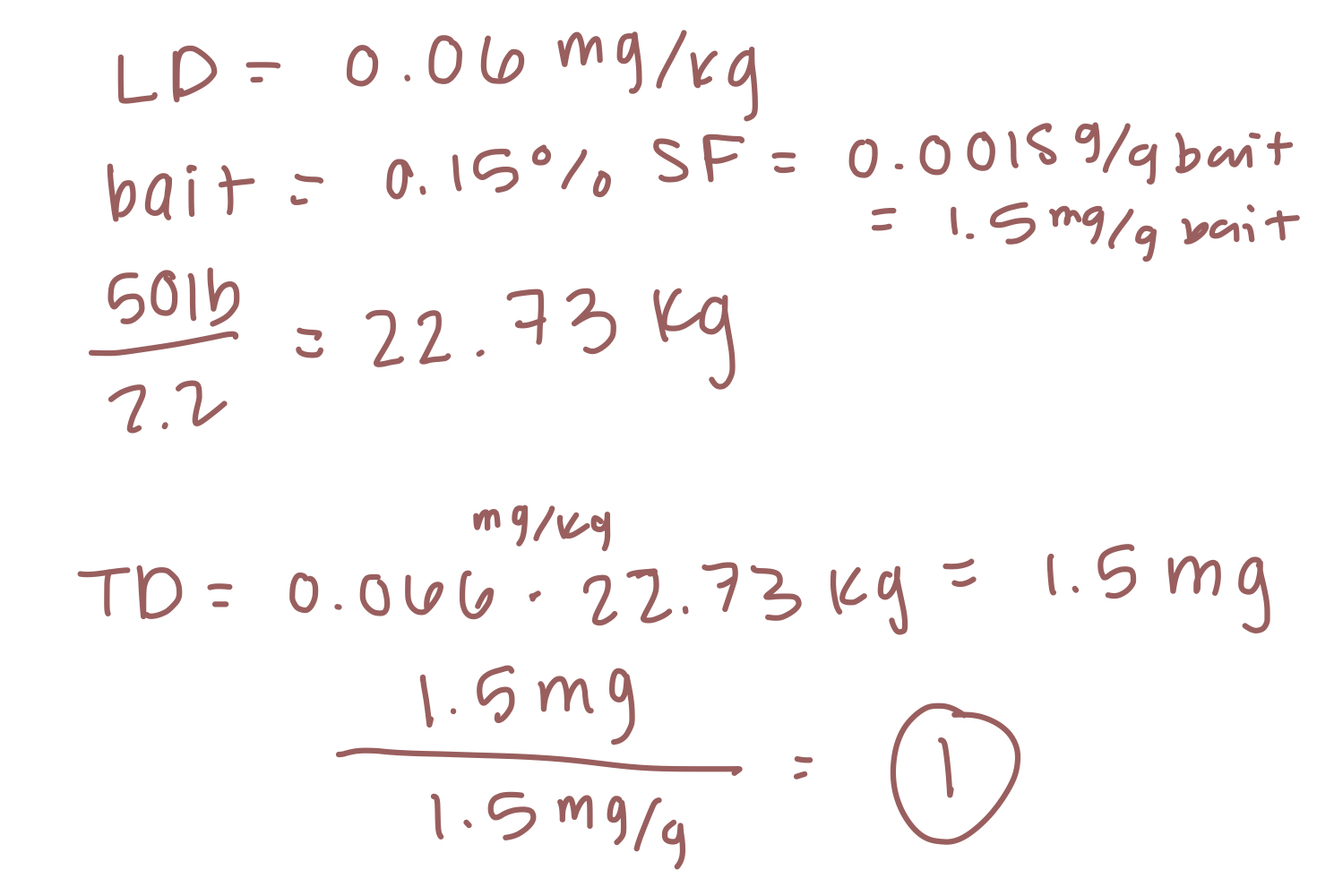 LD = 0.06 mg/kg
bait = 0.15% SF = 0.0015 g/g bait
= 1.5 mg/g bait
50lb
= 22.73 kg
2.2
mg/kg
TD = 0.066 · 22.73 kg = 1.5 mg
1.5 mg
= 1
1.5 mg/g